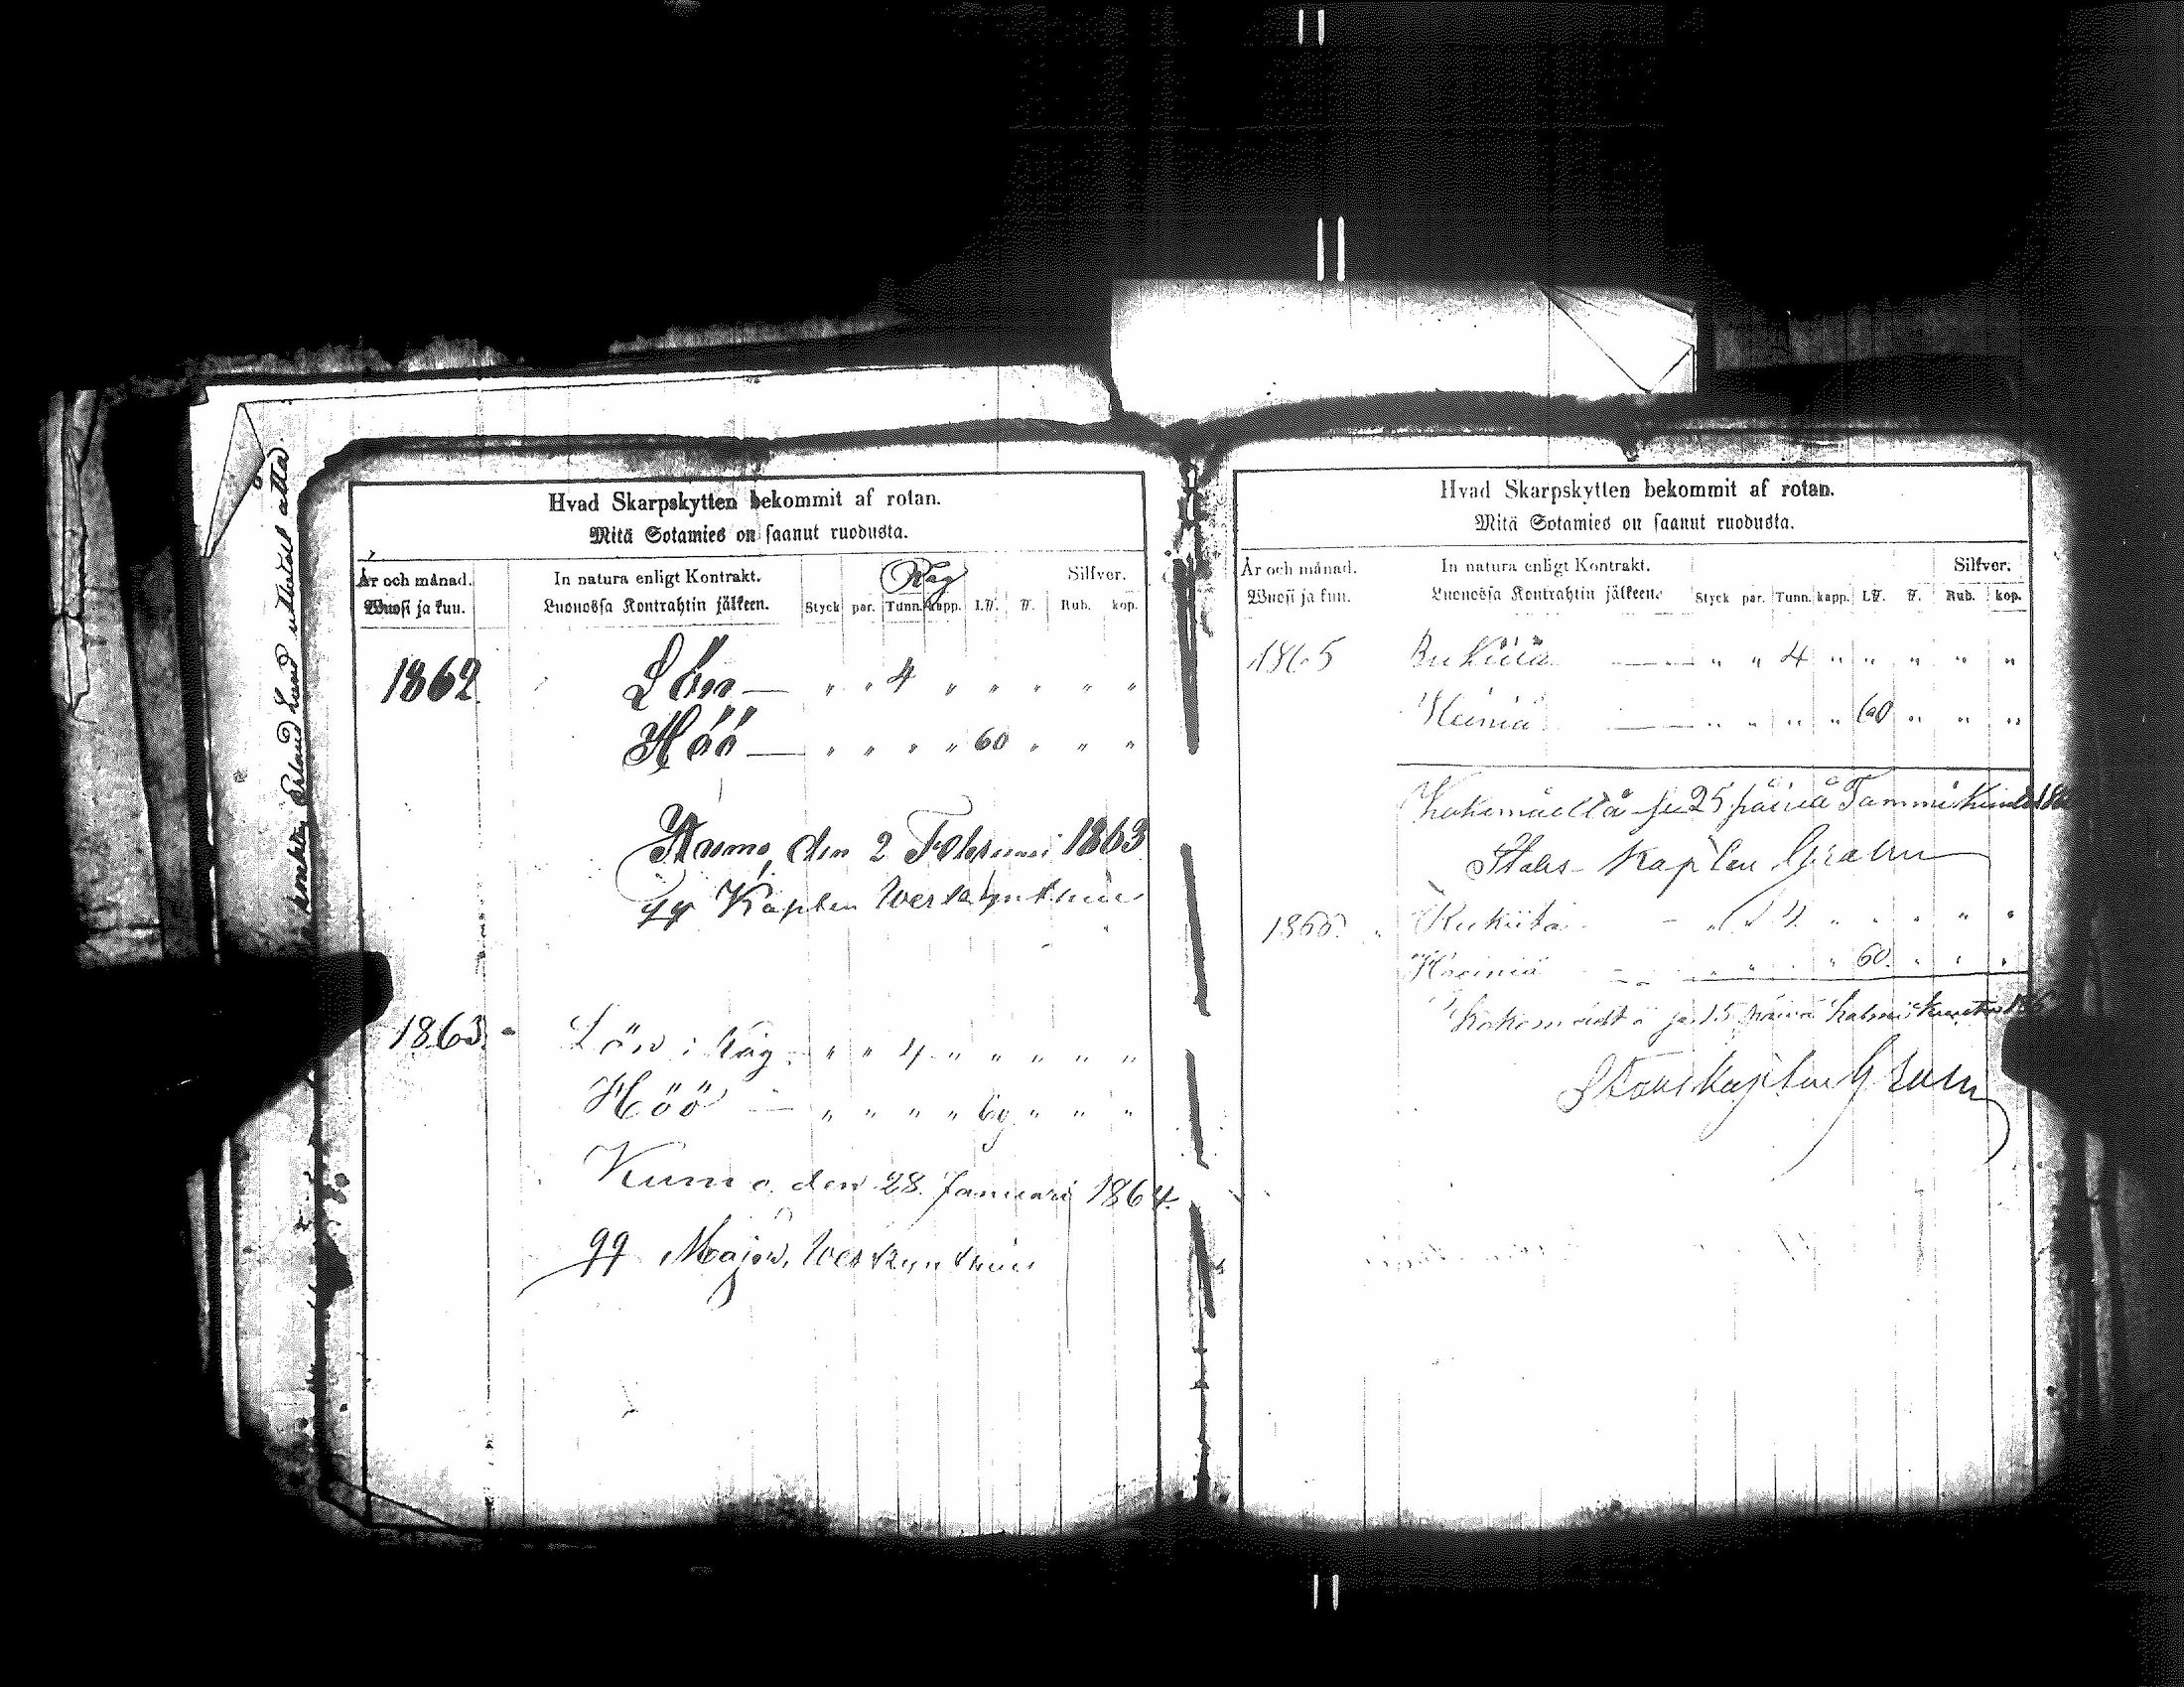 Hvad Skarpskytten bekommit af rotan.
Mitä Sotamies on saanut ruodusta.
År och månad. In natura enligt Kontrakt. Råg Silfver.
Wuosi ja kuu. Luonossa Kontrahtin jälkeen. Styck par. Tunn. kapp. L℔. ℔. Rub. kop.
1862 Lön — " " 4 " " " " "
Höö — " " " " 60 " " "
Kumo, den 2 Februari 1863
Kapten
1863 Lön i Råg - " " 4 " " " " "
Höö — " " " " 60 " " "
Kumo den 28 Januari 1864.
Major
Hvad Skarpskytten bekommit af rotan.
Mitä Sotamies on saanut ruodusta.
År och månad. In natura enligt Kontrakt. Silfver.
Wuosi ja kuu. Luonossa Kontrahtin jälkeen. Styck par. Tunn. kapp. L℔. ℔. Rub. kop.
1865 Rukiita — " " 4 " " " " "
Heiniä — " " " " 60 " " "
Kokemäellä se 25 päivä Tammikuuta
Stabs-Kapten
1866 Rukiita - " " 4 " " " " "
Heiniä " " " " 60 " " "
15 päivä
Stabskapten